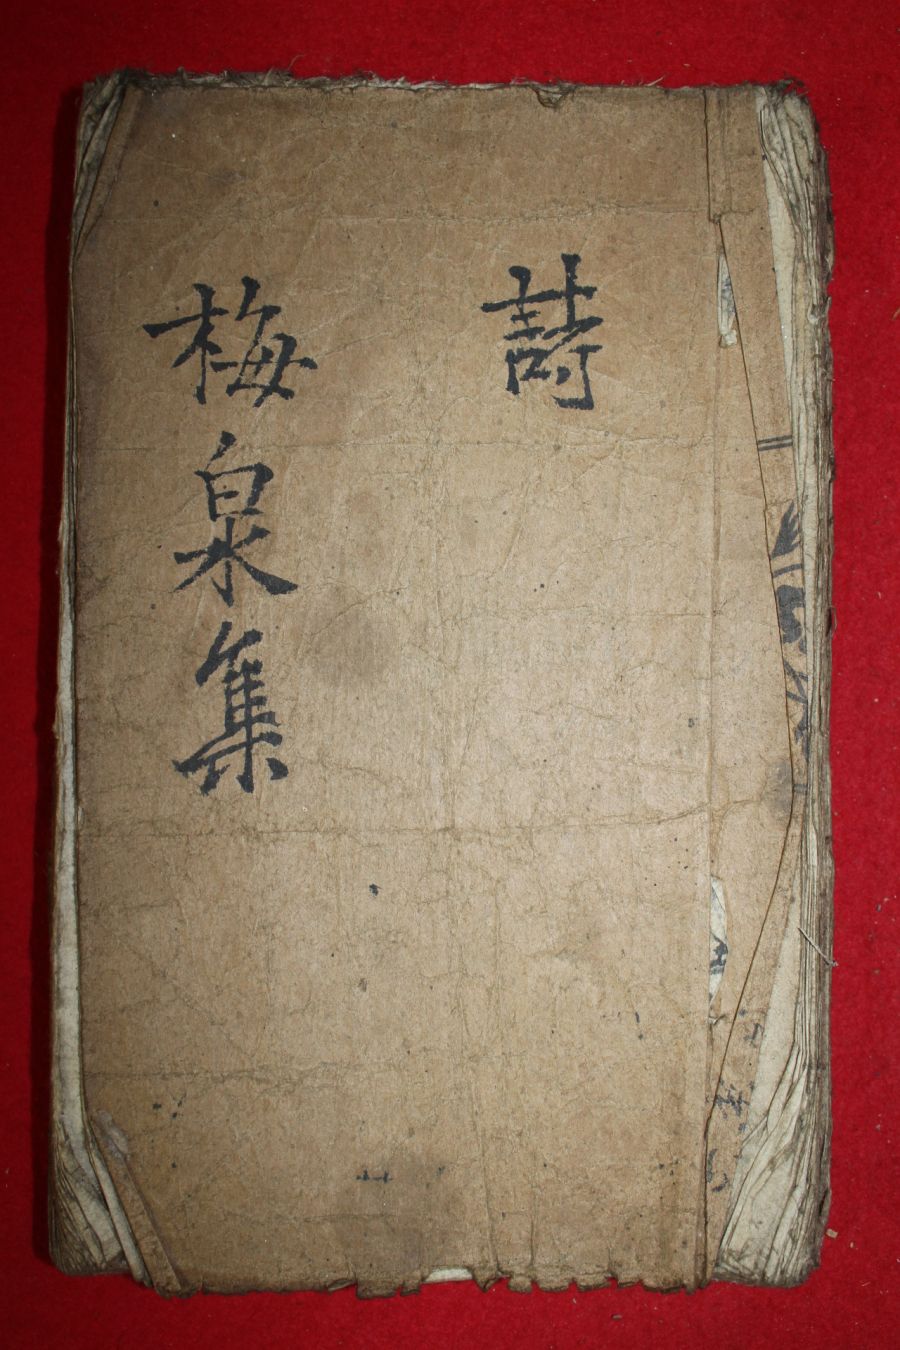 詩
梅泉集